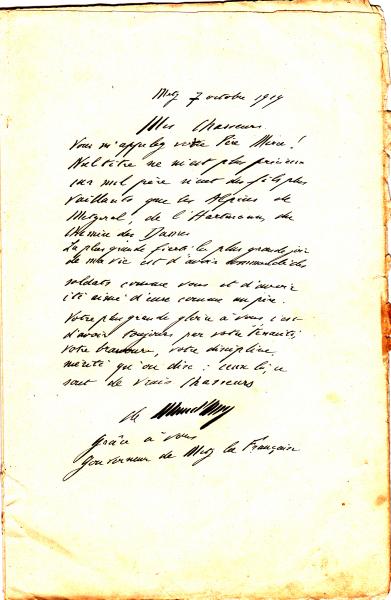 Metz 7 octobre 1919
Mes Chasseurs
Vous m'appelez votre Père Mesc!
Nul titre ne m'est plus précieux
car nul père n'eut des fils plus
vaillants que les Alpins de
Metzeral, de l'Hartmann, du
Chemin des Dames
La plus grande fierté la plus grande joie
de ma vie est d'avoir commandé des
soldats comme vous et d'avoir
été aimé d'eux comme un père.
Votre plus grande gloire à vous c'est
d'avoir toujours par votre tenacité,
votre bravoure, votre discipline
mérité qu'on dise : ceux là, ce
sont de vrais Chasseurs
de
Grâce à vous
Gouverneur de Metz la Française